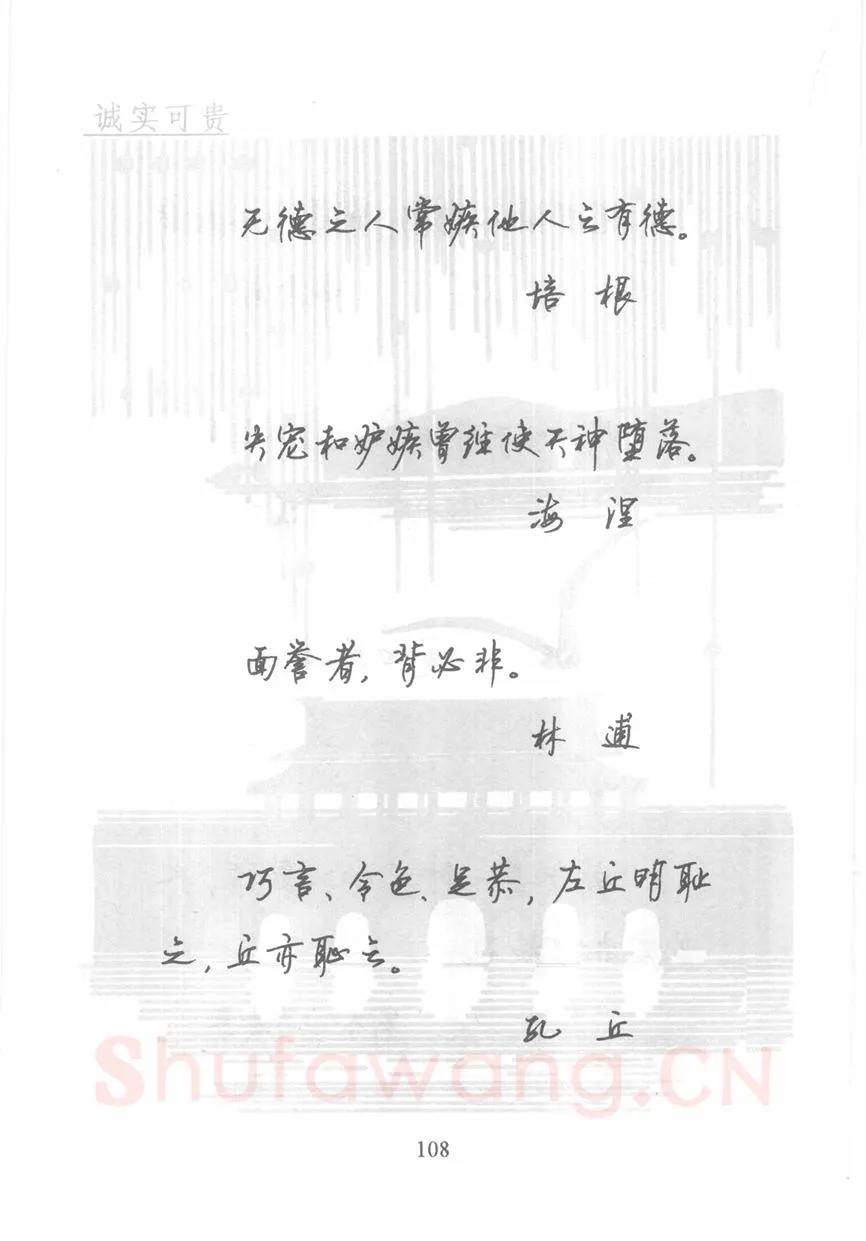 诚实可贵
无德之人常嫉他人之有德。
培 根
失宠和妒嫉曾经使天神堕落。
海 涅
面誉者，背必非。
林 逋
巧言、令色、足恭，左丘明耻
之，丘亦耻之。
孔 丘
Shufawang.CN
108